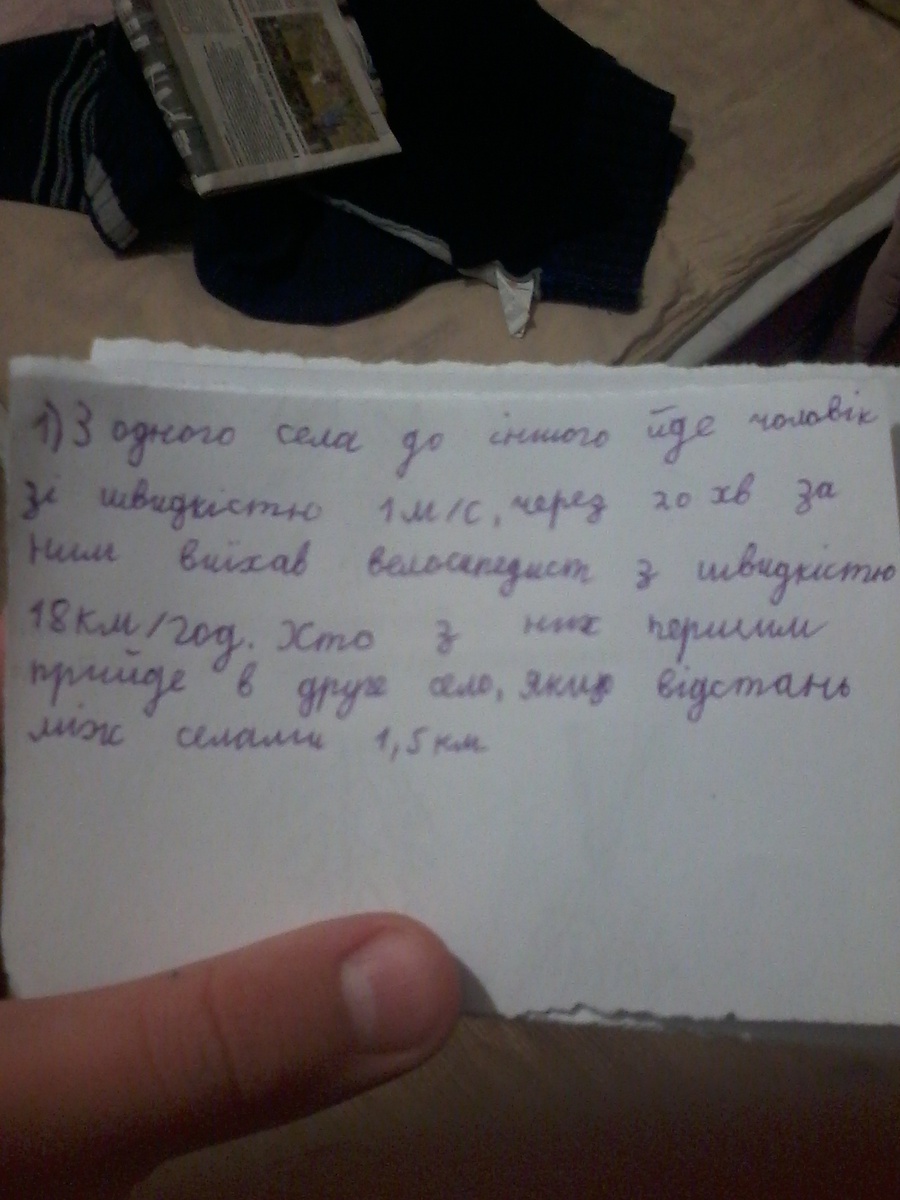 1) З одного села до іншого йде чоловік
зі швидкістю 1 м/с, через 20 хв за
ним виїхав велосипедист з швидкістю
18 км/год. Хто з них першим
прийде в друге село, якщо відстань
між селами 1,5 км